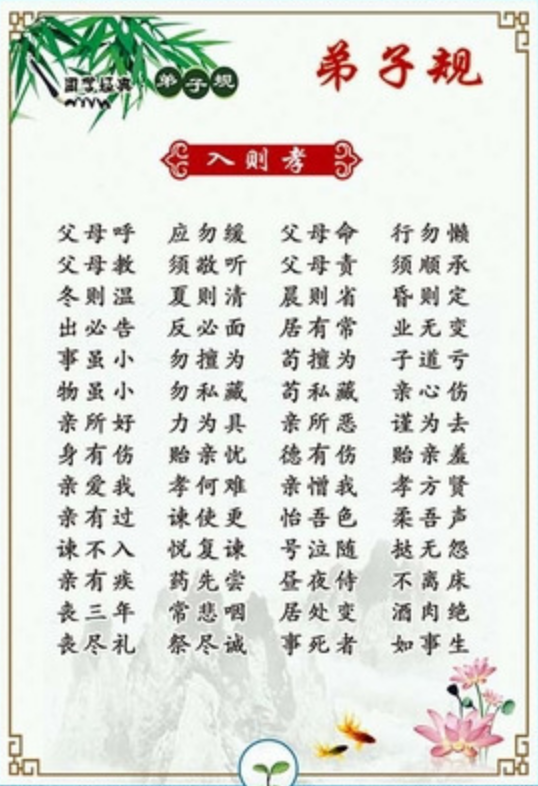 国学经典 弟子规
弟子规
入则孝
父母呼 应勿缓 父母命 行勿懒
父母教 须敬听 父母责 须顺承
冬则温 夏则清 晨则省 昏则定
出必告 反必面 居有常 业无变
事虽小 勿擅为 苟擅为 子道亏
物虽小 勿私藏 苟私藏 亲心伤
亲所好 力为具 亲所恶 谨为去
身有伤 贻亲忧 德有伤 贻亲羞
亲爱我 孝何难 亲憎我 孝方贤
亲有过 谏使更 怡吾色 柔吾声
谏不入 悦复谏 号泣随 挞无怨
亲有疾 药先尝 昼夜侍 不离床
丧三年 常悲咽 居处变 酒肉绝
丧尽礼 祭尽诚 事死者 如事生